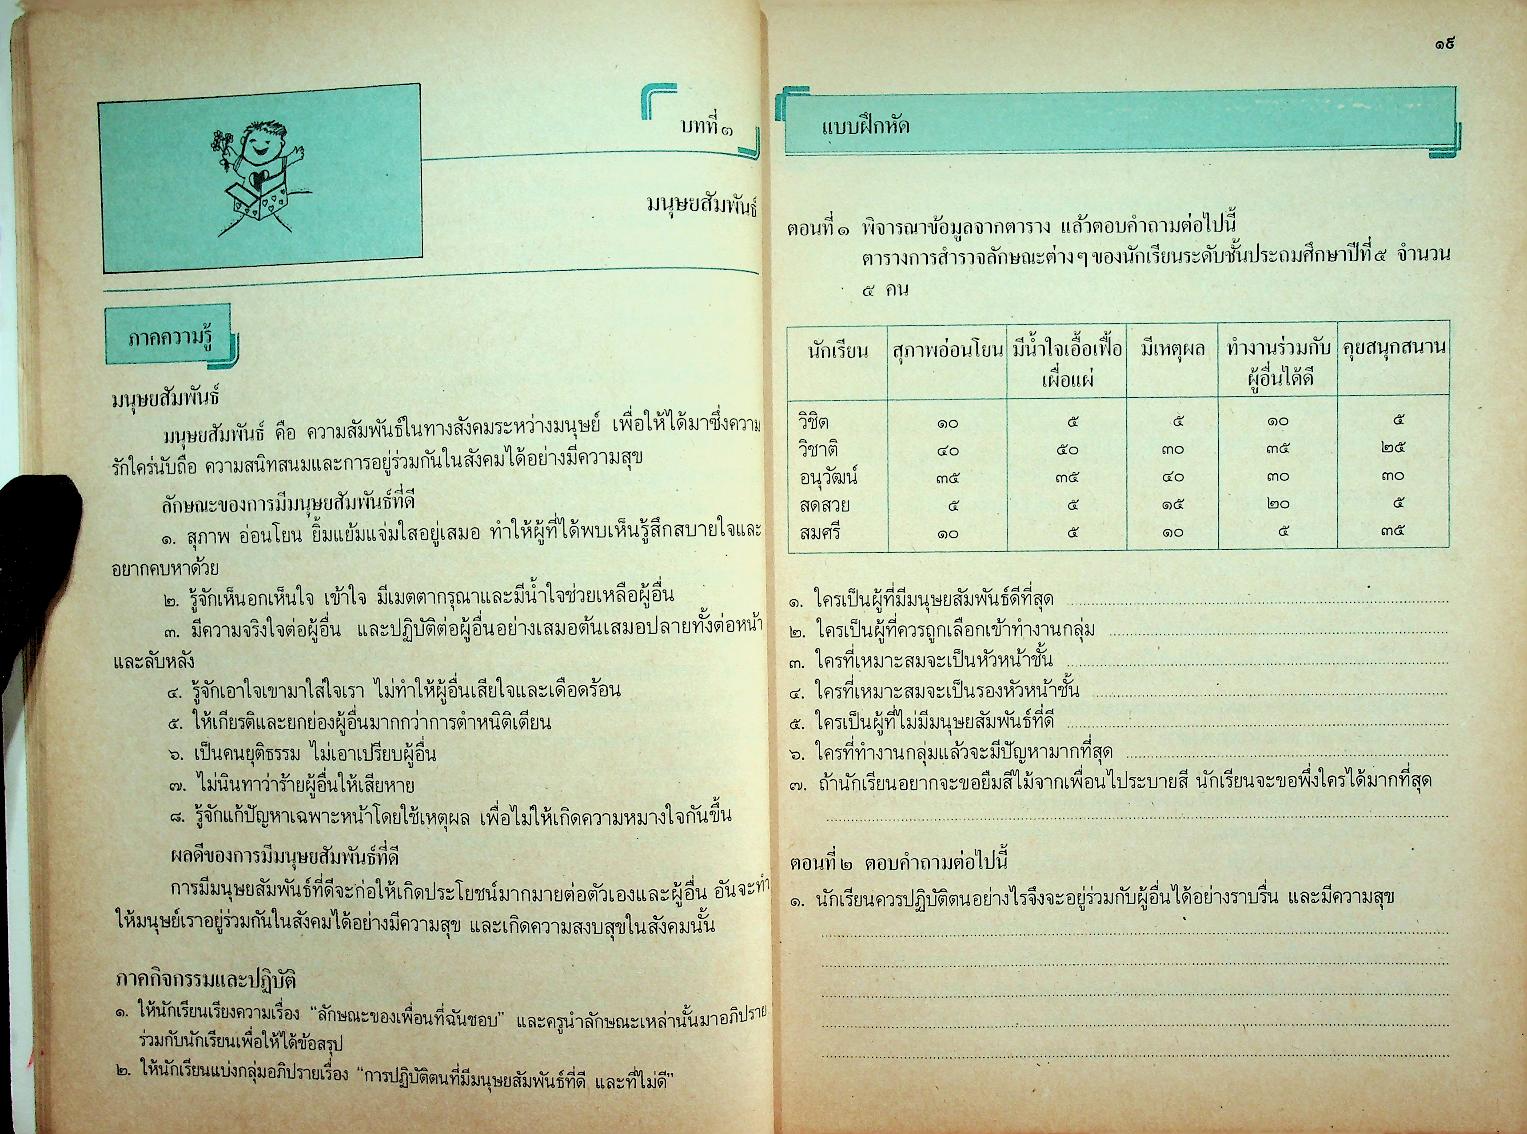 บทที่ ๑
มนุษยสัมพันธ์
ภาคความรู้
มนุษยสัมพันธ์
มนุษยสัมพันธ์ คือ ความสัมพันธ์ในทางสังคมระหว่างมนุษย์ เพื่อให้ได้มาซึ่งความ
รักใคร่นับถือ ความสนิทสนมและการอยู่ร่วมกันในสังคมได้อย่างมีความสุข
ลักษณะของการมีมนุษยสัมพันธ์ที่ดี
๑. สุภาพ อ่อนโยน ยิ้มแย้มแจ่มใสอยู่เสมอ ทำให้ผู้ที่ได้พบเห็นรู้สึกสบายใจและ
อยากคบหาด้วย
๒. รู้จักเห็นอกเห็นใจ เข้าใจ มีเมตตากรุณาและมีน้ำใจช่วยเหลือผู้อื่น
๓. มีความจริงใจต่อผู้อื่น และปฏิบัติต่อผู้อื่นอย่างเสมอต้นเสมอปลายทั้งต่อหน้า
และลับหลัง
๔. รู้จักเอาใจเขามาใส่ใจเรา ไม่ทำให้ผู้อื่นเสียใจและเดือดร้อน
๕. ให้เกียรติและยกย่องผู้อื่นมากกว่าการตำหนิติเตียน
๖. เป็นคนยุติธรรม ไม่เอาเปรียบผู้อื่น
๗. ไม่นินทาว่าร้ายผู้อื่นให้เสียหาย
๘. รู้จักแก้ปัญหาเฉพาะหน้าโดยใช้เหตุผล เพื่อไม่ให้เกิดความหมางใจกันขึ้น
ผลดีของการมีมนุษยสัมพันธ์ที่ดี
การมีมนุษยสัมพันธ์ที่ดีจะก่อให้เกิดประโยชน์มากมายต่อตัวเองและผู้อื่น อันจะทำ
ให้มนุษย์เราอยู่ร่วมกันในสังคมได้อย่างมีความสุข และเกิดความสงบสุขในสังคมนั้น
ภาคกิจกรรมและปฏิบัติ
๑. ให้นักเรียนเรียงความเรื่อง "ลักษณะของเพื่อนที่ฉันชอบ" และครูนำลักษณะเหล่านั้นมาอภิปราย
ร่วมกับนักเรียนเพื่อให้ได้ข้อสรุป
๒. ให้นักเรียนแบ่งกลุ่มอภิปรายเรื่อง "การปฏิบัติตนที่มีมนุษยสัมพันธ์ที่ดี และที่ไม่ดี"
๑๙
แบบฝึกหัด
ตอนที่ ๑ พิจารณาข้อมูลจากตาราง แล้วตอบคำถามต่อไปนี้
ตารางการสำรวจลักษณะต่าง ๆ ของนักเรียนระดับชั้นประถมศึกษาปีที่ ๕ จำนวน
๕ คน
นักเรียน สุภาพอ่อนโยน มีน้ำใจเอื้อเฟื้อ มีเหตุผล ทำงานร่วมกับ คุยสนุกสนาน
เผื่อแผ่ ผู้อื่นได้ดี
วิชิต ๑๐ ๕ ๕ ๑๐ ๕
วิชาติ ๔๐ ๕๐ ๓๐ ๓๕ ๒๕
อนุวัฒน์ ๓๕ ๓๕ ๔๐ ๓๐ ๓๐
สดสวย ๕ ๕ ๑๕ ๒๐ ๕
สมศรี ๑๐ ๕ ๑๐ ๕ ๓๕
๑. ใครเป็นผู้ที่มีมนุษยสัมพันธ์ดีที่สุด
๒. ใครเป็นผู้ที่ควรถูกเลือกเข้าทำงานกลุ่ม
๓. ใครที่เหมาะสมจะเป็นหัวหน้าชั้น
๔. ใครที่เหมาะสมจะเป็นรองหัวหน้าชั้น
๕. ใครเป็นผู้ที่ไม่มีมนุษยสัมพันธ์ที่ดี
๖. ใครที่ทำงานกลุ่มแล้วจะมีปัญหามากที่สุด
๗. ถ้านักเรียนอยากจะขอยืมสีไม้จากเพื่อนไประบายสี นักเรียนจะขอพึ่งใครได้มากที่สุด
ตอนที่ ๒ ตอบคำถามต่อไปนี้
๑. นักเรียนควรปฏิบัติตนอย่างไรจึงจะอยู่ร่วมกับผู้อื่นได้อย่างราบรื่น และมีความสุข